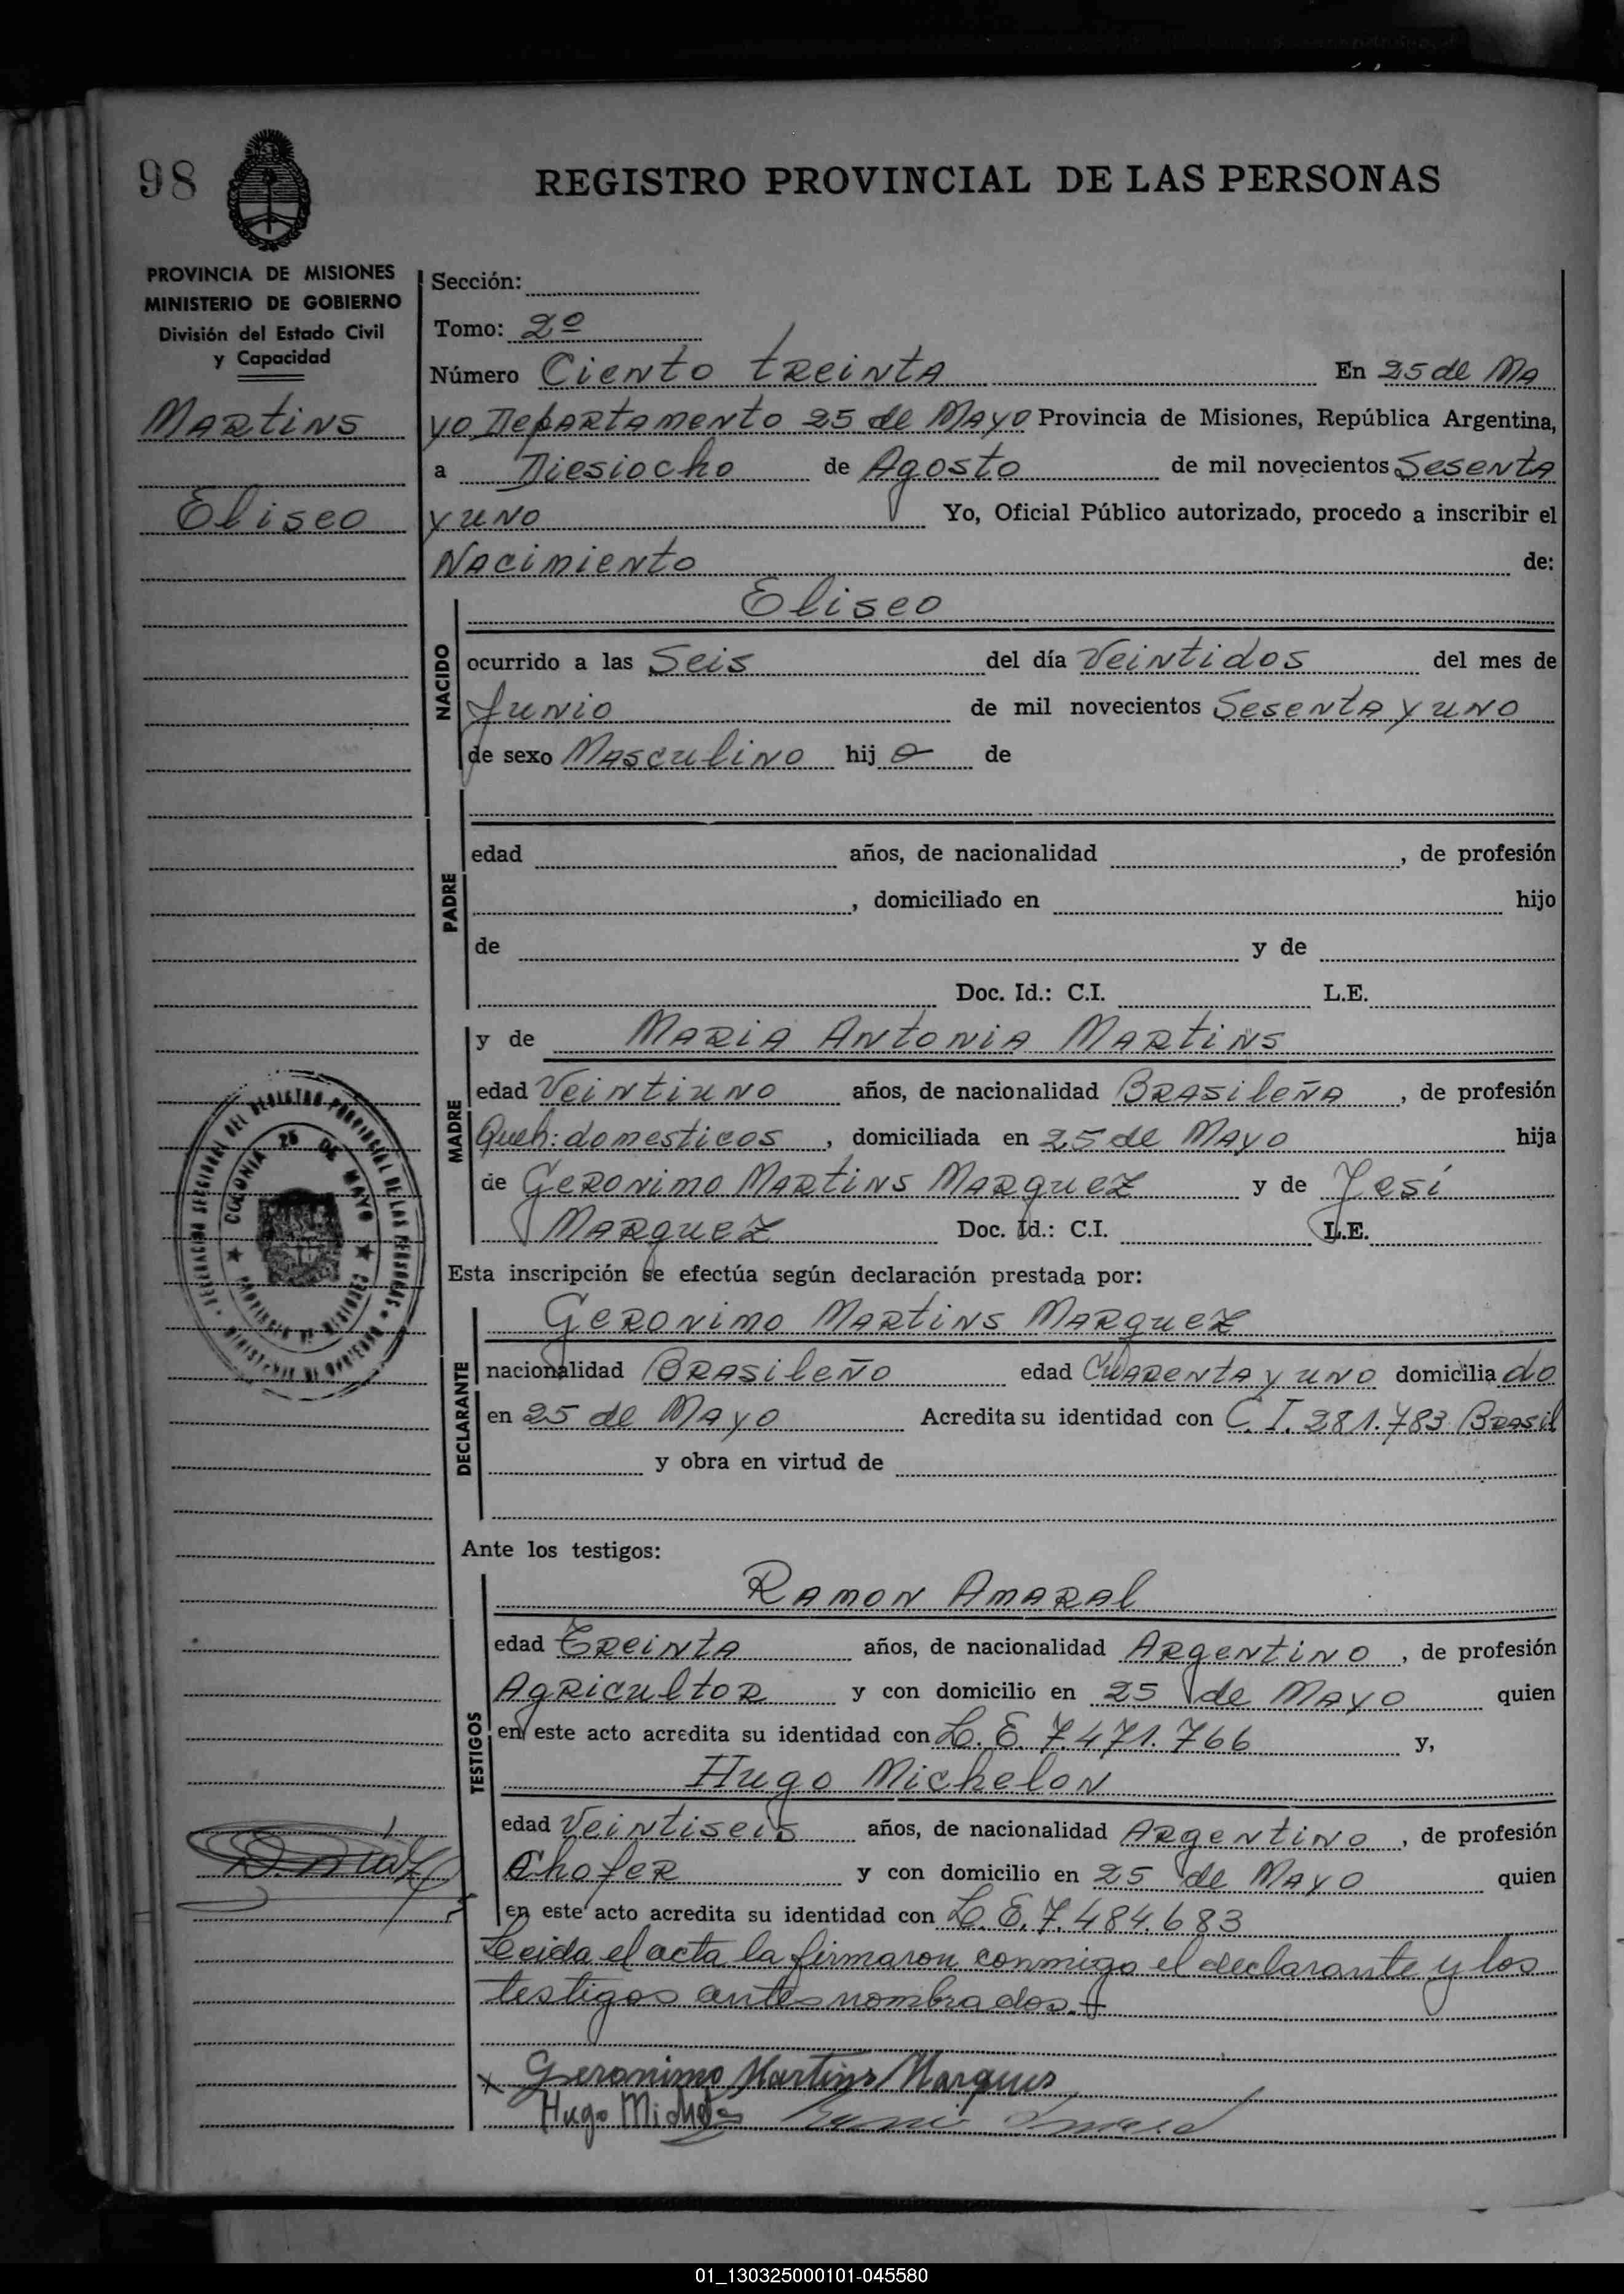 98
REGISTRO PROVINCIAL DE LAS PERSONAS
PROVINCIA DE MISIONES
MINISTERIO DE GOBIERNO
División del Estado Civil
y Capacidad
Martins
Eliseo
Sección:
Tomo: 2º
Número Ciento treinta En 25 de Ma
yo Departamento 25 de Mayo Provincia de Misiones, República Argentina,
a Diesiocho de Agosto de mil novecientos Sesenta
y uno Yo, Oficial Público autorizado, procedo a inscribir el
Nacimiento de:
NACIDO
Eliseo
ocurrido a las Seis del día Veintidos del mes de
Junio de mil novecientos Sesenta y uno
de sexo Masculino hijo de
PADRE
edad años, de nacionalidad , de profesión
, domiciliado en hijo
de y de
Doc. Id.: C.I. L.E.
MADRE
y de Maria Antonia Martins
edad Veintiuno años, de nacionalidad Brasileña , de profesión
Queh: domesticos , domiciliada en 25 de Mayo hija
de Geronimo Martins Marquez y de Jesi
Marquez Doc. Id.: C.I. L.E.
COLONIA 25 DE MAYO
Esta inscripción se efectúa según declaración prestada por:
DECLARANTE
Geronimo Martins Marquez
nacionalidad Brasileño edad Cuarenta y uno domiciliado
en 25 de Mayo Acredita su identidad con C.I. 281.783 Brasil
y obra en virtud de
Ante los testigos:
TESTIGOS
Ramon Amaral
edad Treinta años, de nacionalidad Argentino , de profesión
Agricultor y con domicilio en 25 de Mayo quien
en este acto acredita su identidad con L.E. 7.471.766 y,
Hugo Michelon
edad Veintiseis años, de nacionalidad Argentino , de profesión
Chofer y con domicilio en 25 de Mayo quien
en este acto acredita su identidad con L.E. 7.484.683
Leida el acta la firmaron conmigo el declarante y los
testigos antes nombrados.
x Geronimo Martins Marques
Hugo
01_130325000101-045580